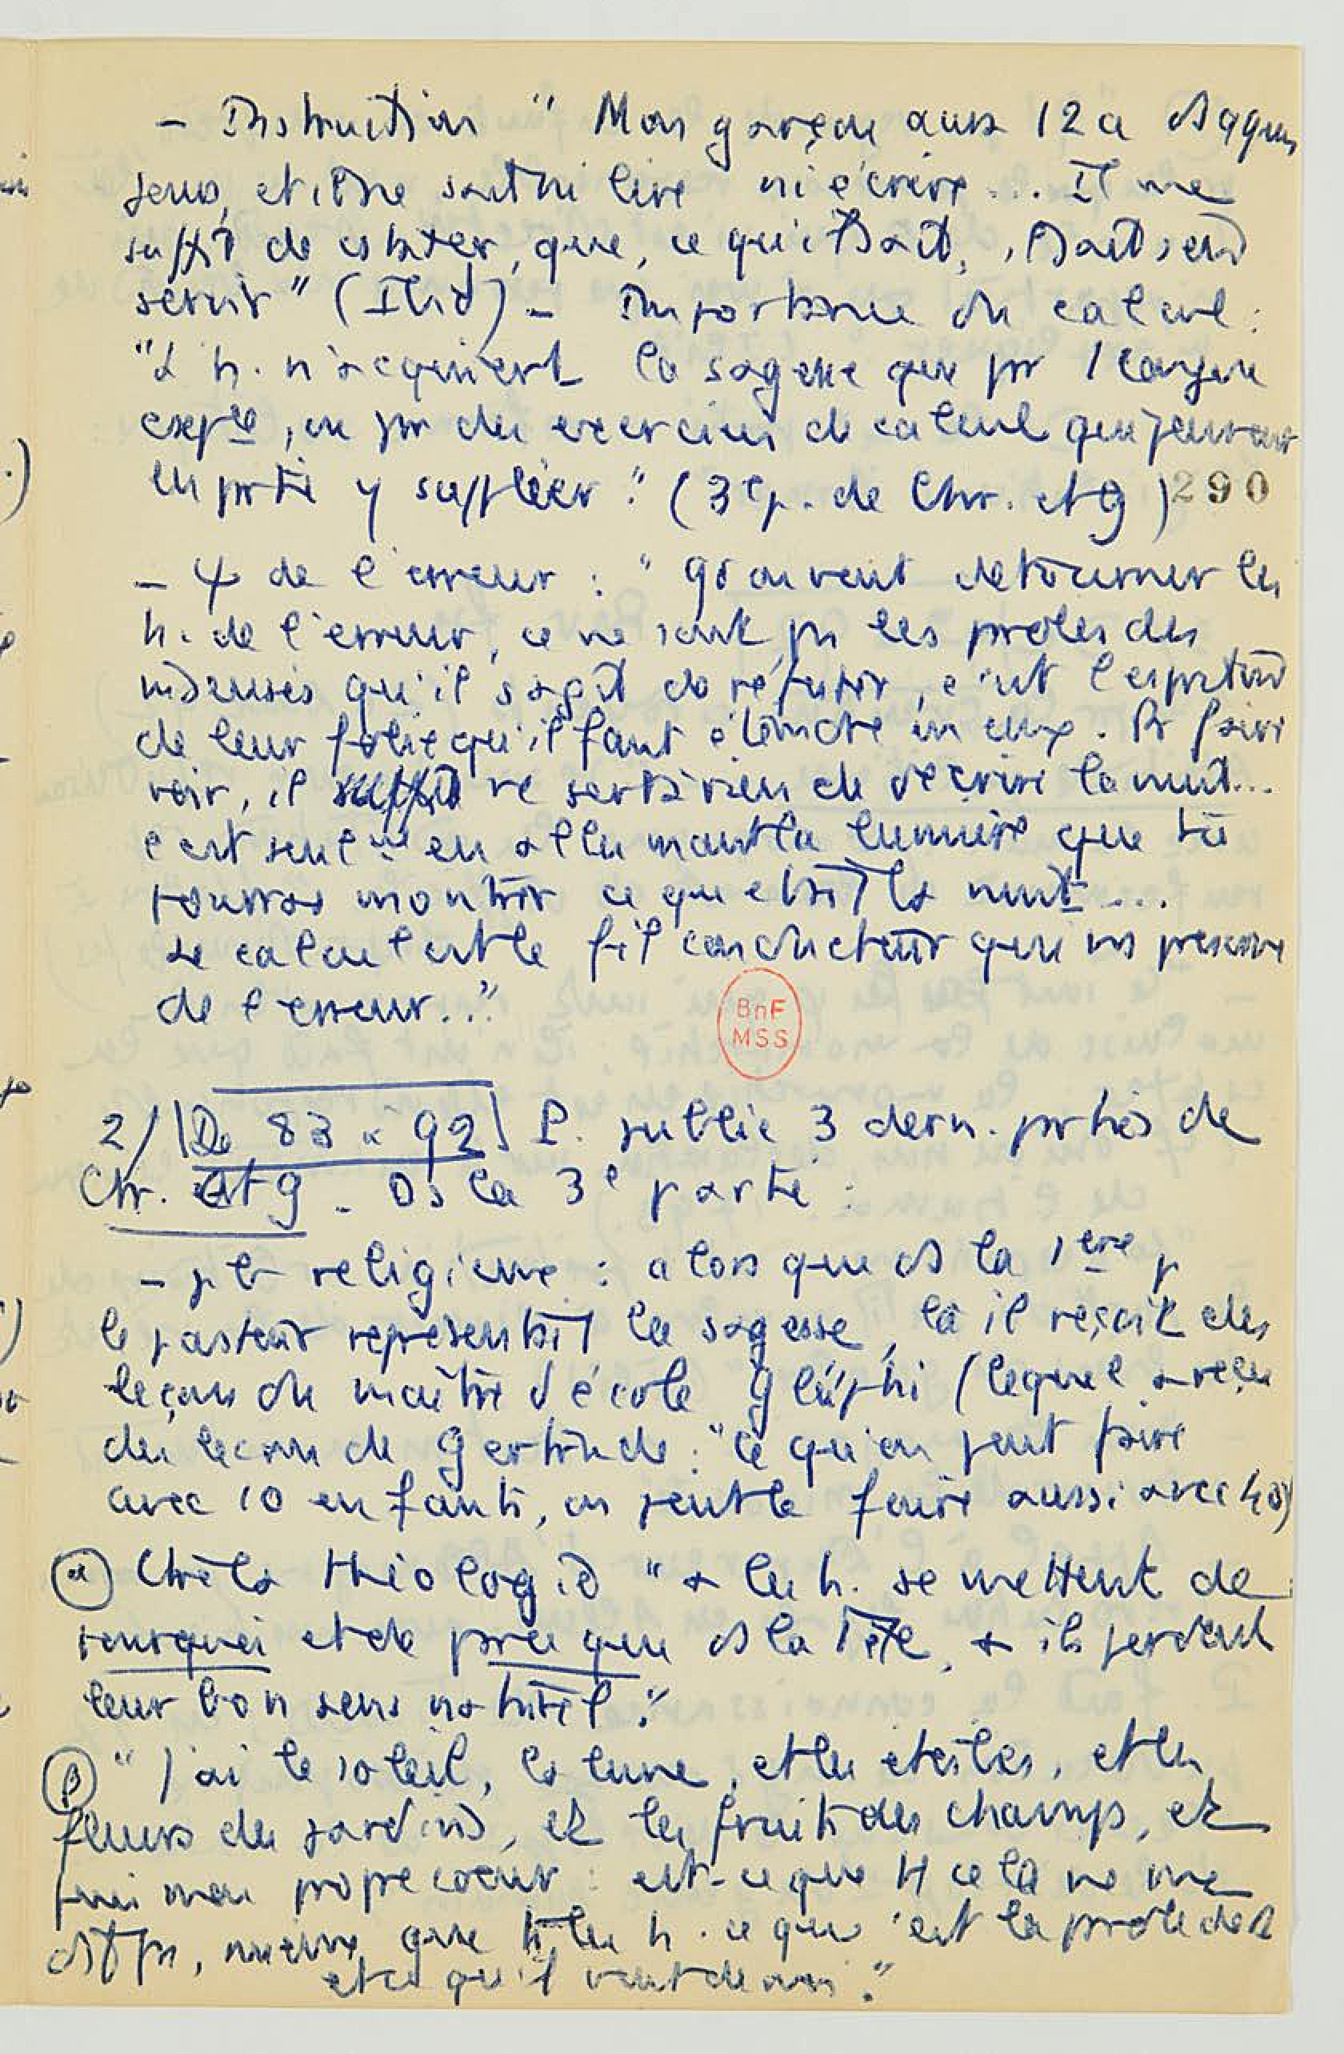 - Instruction " Mon garçon aura 12 a
sens, et il ne sait ni lire ni écrire... Il me
suffit de constater, que, ce qu'il sait,
servir" (Ibid) - Importance du calcul :
"L h. n'acquiert la sagesse que pr 1 longue
expce, ou pr des exercices de calcul qui peuvent
en ptie y suppléer." (3e p. de Chr. et G) 290
- de l'erreur : " Qd on veut détourner les
h. de l'erreur, ce ne sont ps les proles des
insensés qu'il s'agit de réfuter, c'est l'esprit
de leur folie qu'il faut éteindre en eux. Pr faire
voir, il ne sert à rien de décrire la nuit...
c'est seulmt en allumant la lumière que tu
pourras montrer ce qu'était la nuit....
Le calcul est le fil conducteur qui ns préserve
de l'erreur..."
BnF
MSS
2/ De 83 à 92 P. publie 3 dern. pties de
Chr. et G. Ds la 3e partie :
- pb religieux : alors que ds la 1ère p
le pasteur représentait la sagesse, là il reçoit des
leçons du maître d'école Glüphi (lequel a reçu
des leçons de Gertrude : "Ce qu'on peut faire
avec 10 enfants, on peut le faire aussi avec 40)
α la théologie "+ les h. se mettent de
pourquoi et de parce que ds la tête, + ils perdent
leur bon sens naturel."
β "J'ai le soleil, la lune, et les étoiles, et les
fleurs des jardins, et les fruits des champs, et
puis mon propre coeur : est-ce que tt cela ne me
dit ps, mieux que ts les h. ce que c'est la prole de D
et ce qu'il veut de moi."